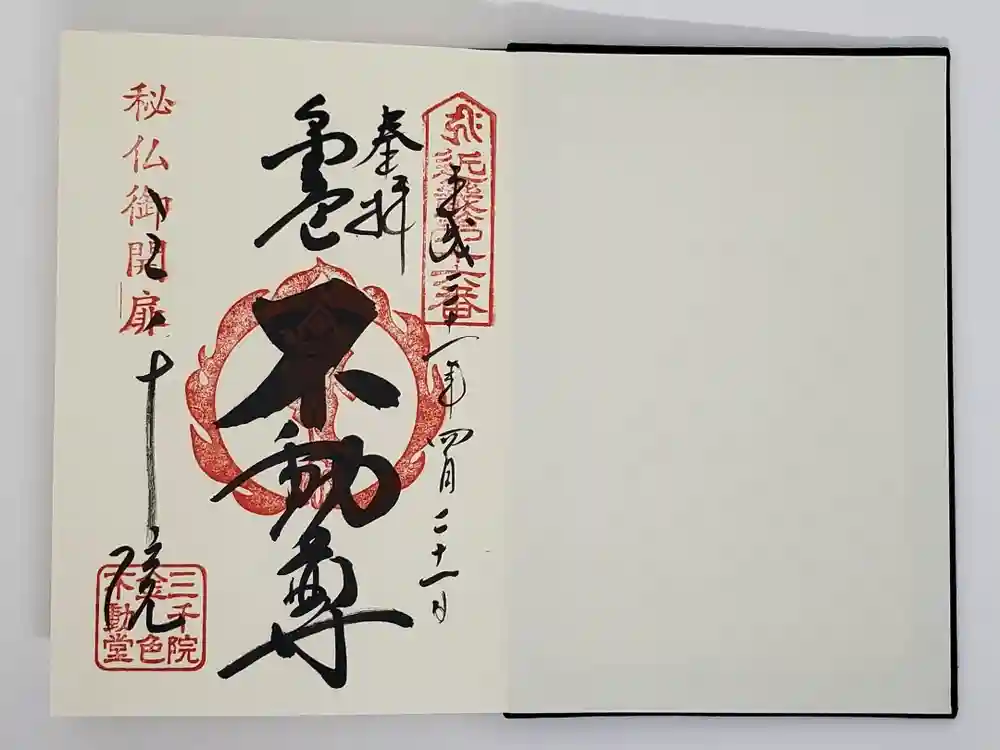 近畿第十六番
平成三十一年四月二十一日
奉拝
不動尊
秘仏御開扉
三千院
三千院
金色
不動堂